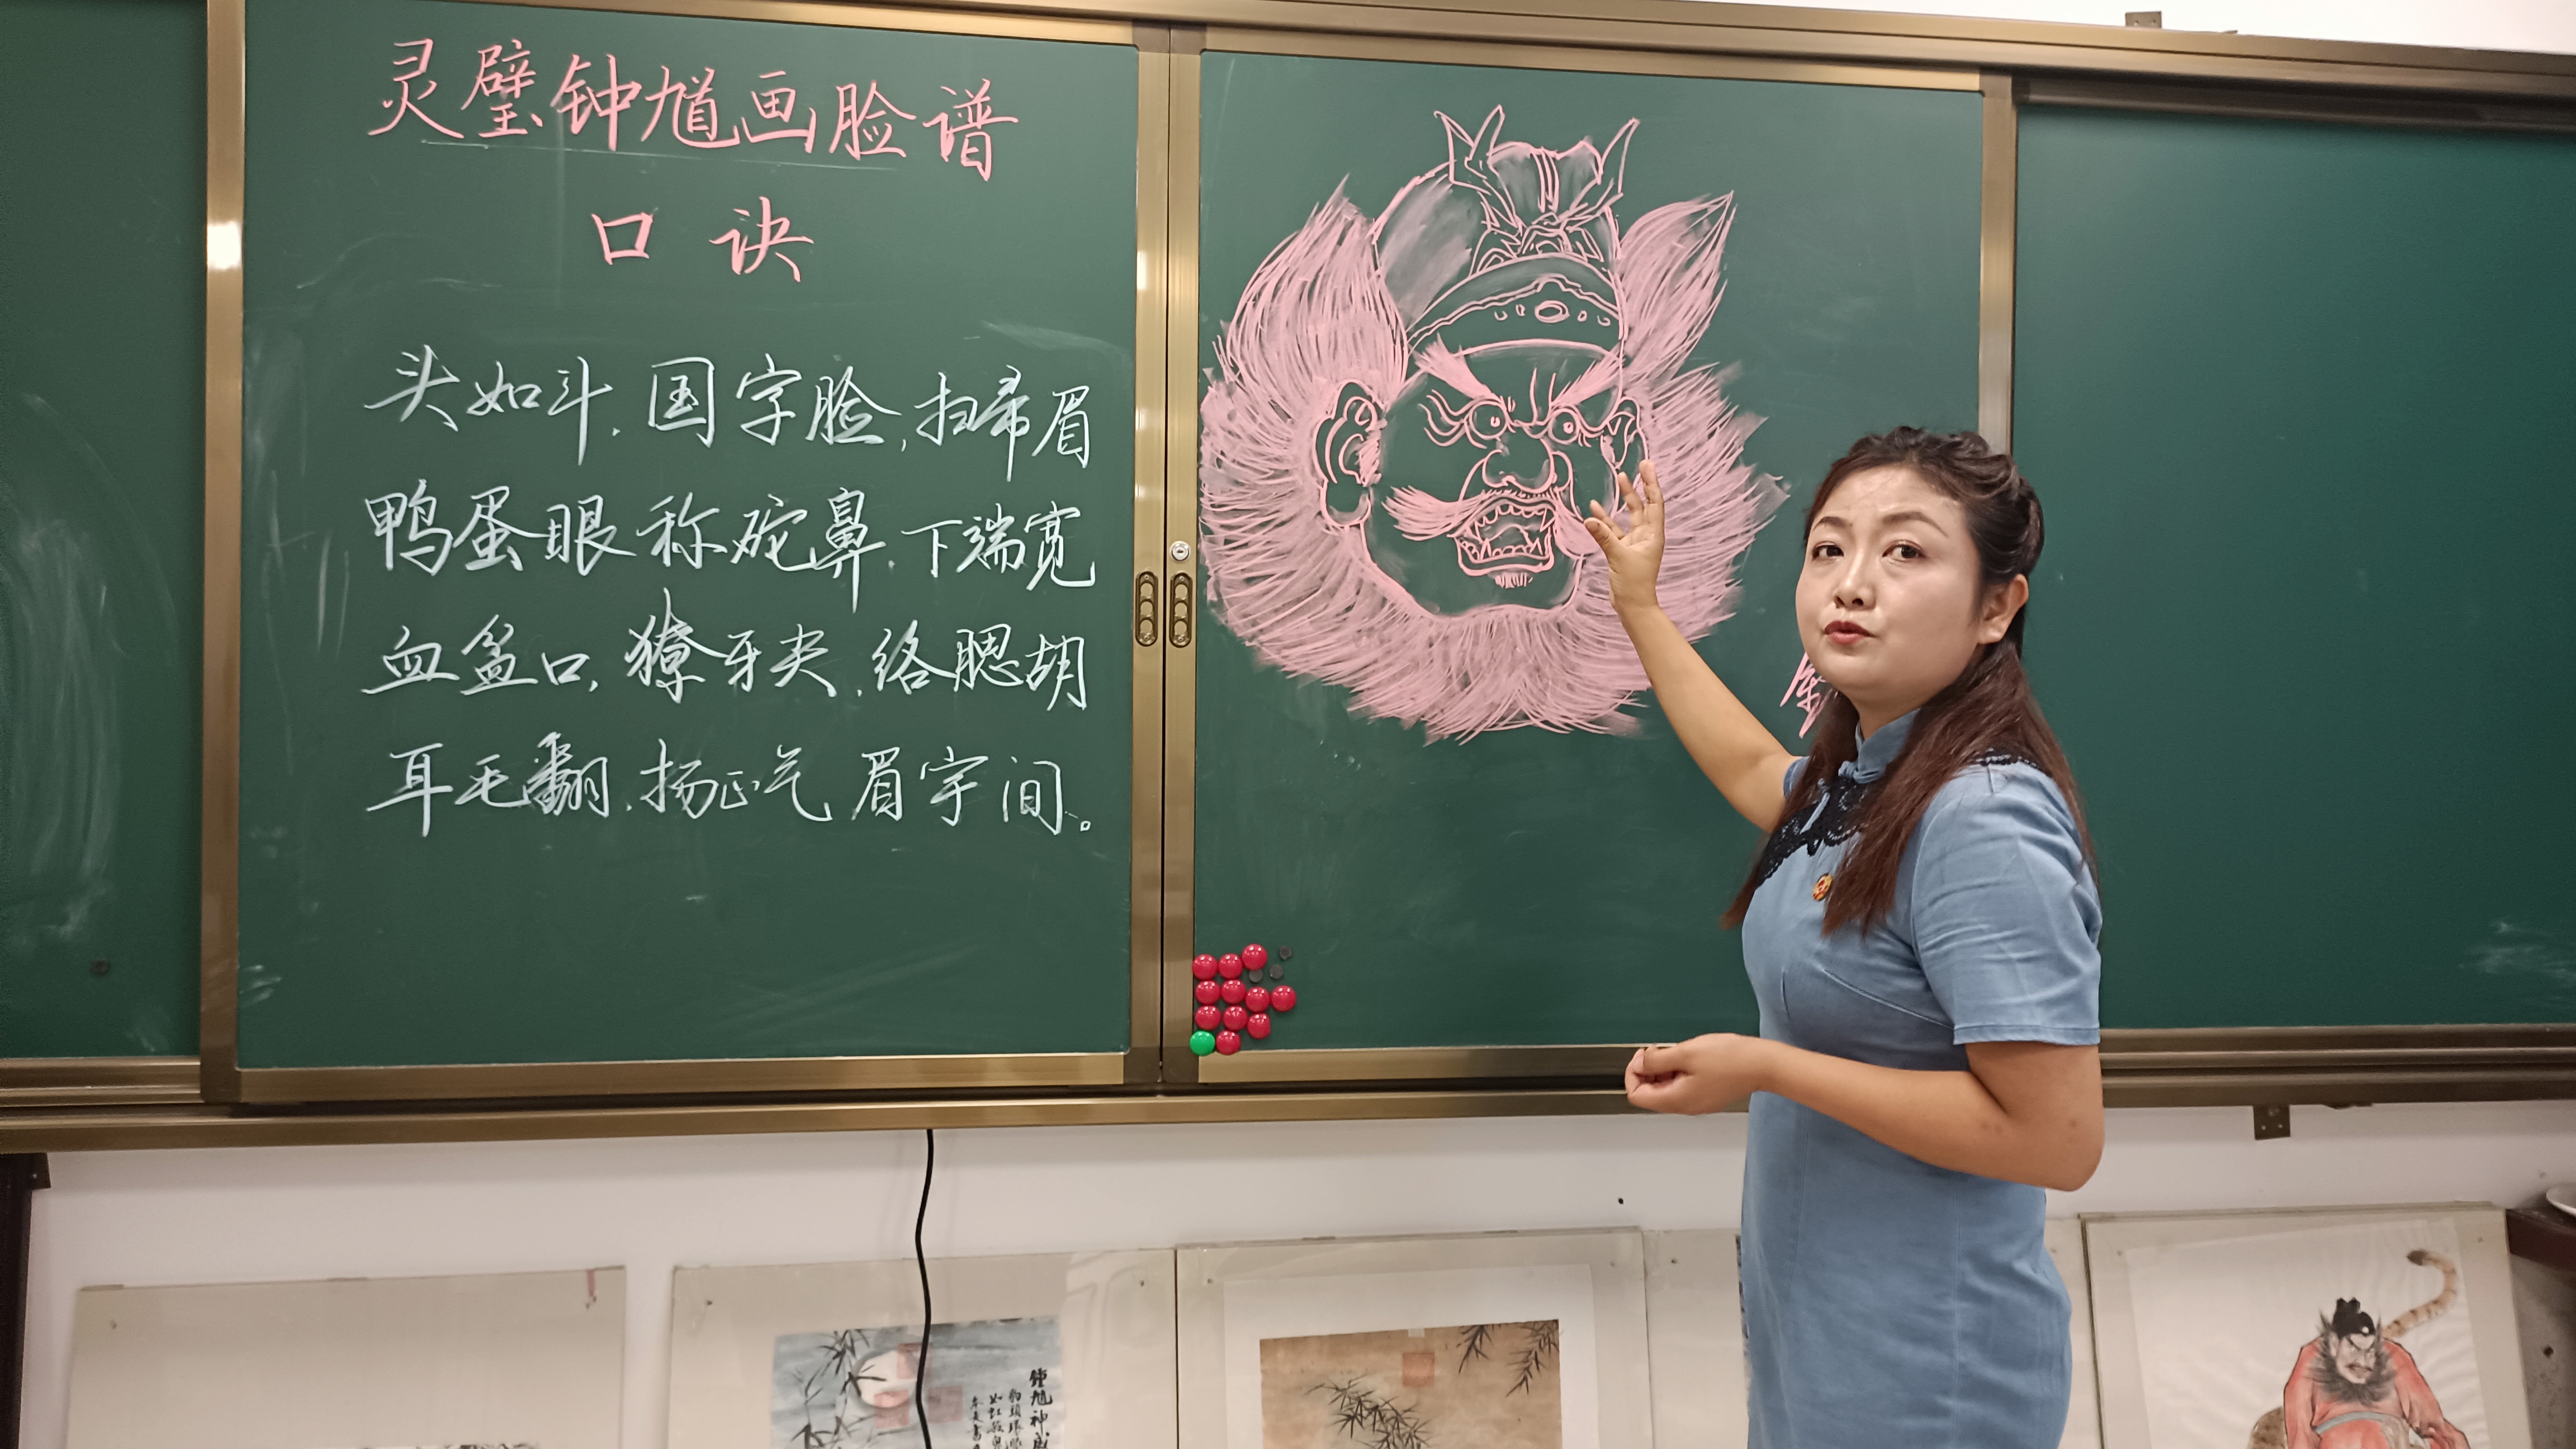 灵璧钟馗画脸谱
口诀
头如斗,国字脸,扫帚眉
鸭蛋眼称砣鼻,下端宽
血盆口,獠牙尖,络腮胡
耳毛翻,扬正气眉宇间。
鍾馗神威